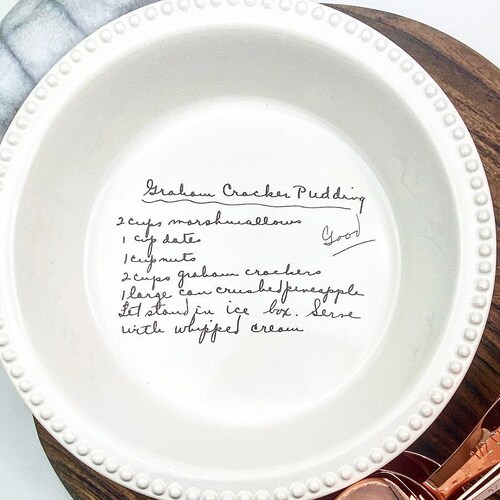 Graham Cracker Pudding
2 cups marshmallows
Good
1 cup dates
1 cup nuts
2 cups graham crackers
1 large can crushed pineapple
Let stand in ice box. Serve
with whipped cream